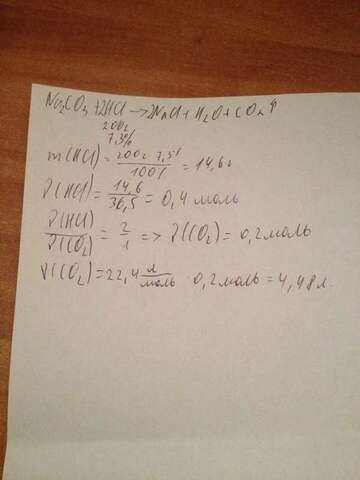 Na₂CO₃ + 2HCl → 2NaCl + H₂O + CO₂↑
200г
7,3%
m(HCl) = 200г · 7,3% / 100% = 14,6г
ν(HCl) = 14,6 / 36,5 = 0,4 моль
ν(HCl) / ν(CO₂) = 2 / 1 => ν(CO₂) = 0,2 моль
V(CO₂) = 22,4 л/моль · 0,2 моль = 4,48 л.